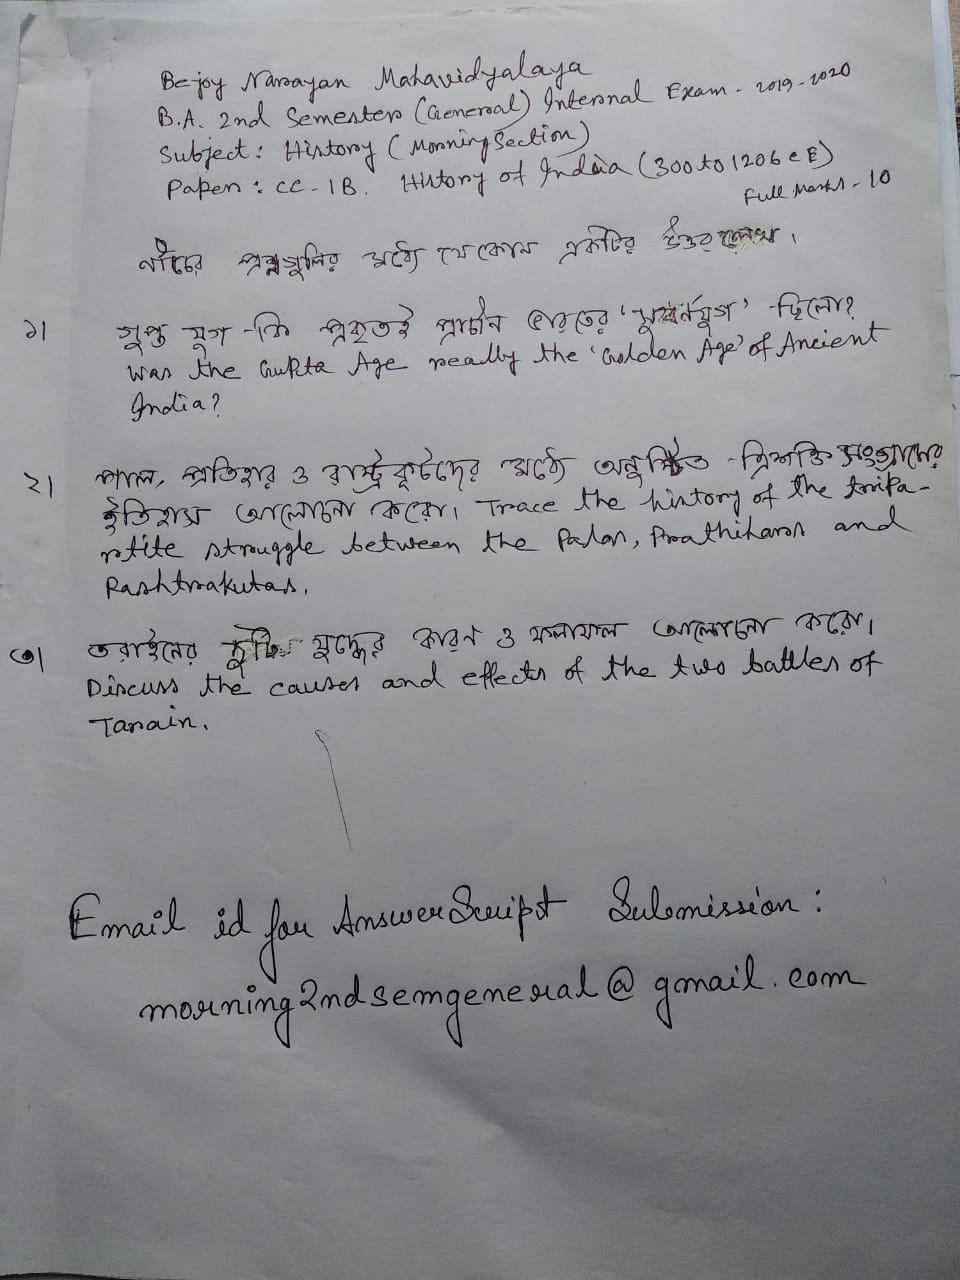 Bejoy Narayan Mahavidyalaya
B.A. 2nd Semester (General) Internal Exam - 2019-2020
Subject: History (Morning Section)
Paper: CC-1B. History of India (300 to 1206 CE)
Full Marks - 10
নীচের প্রশ্নগুলির মধ্যে যে কোন একটির উত্তর লেখ।
১। গুপ্ত যুগ কি প্রকৃতই প্রাচীন ভারতের 'সুবর্নযুগ' ছিলো?
Was the Gupta Age really the 'Golden Age' of Ancient
India?
২। পাল, প্রতিহার ও রাষ্ট্রকূটদের মধ্যে অনুষ্ঠিত ত্রিশক্তি সংগ্রামের
ইতিহাস আলোচনা করো। Trace the history of the tripa-
rtite struggle between the Palas, Prathihars and
Rashtrakutas.
৩। তরাইনের দুটি যুদ্ধের কারণ ও ফলাফল আলোচনা করো।
Discuss the causes and effects of the two battles of
Tarain.
Email id for Answer Script Submission:
morning2ndsemgeneral@gmail.com